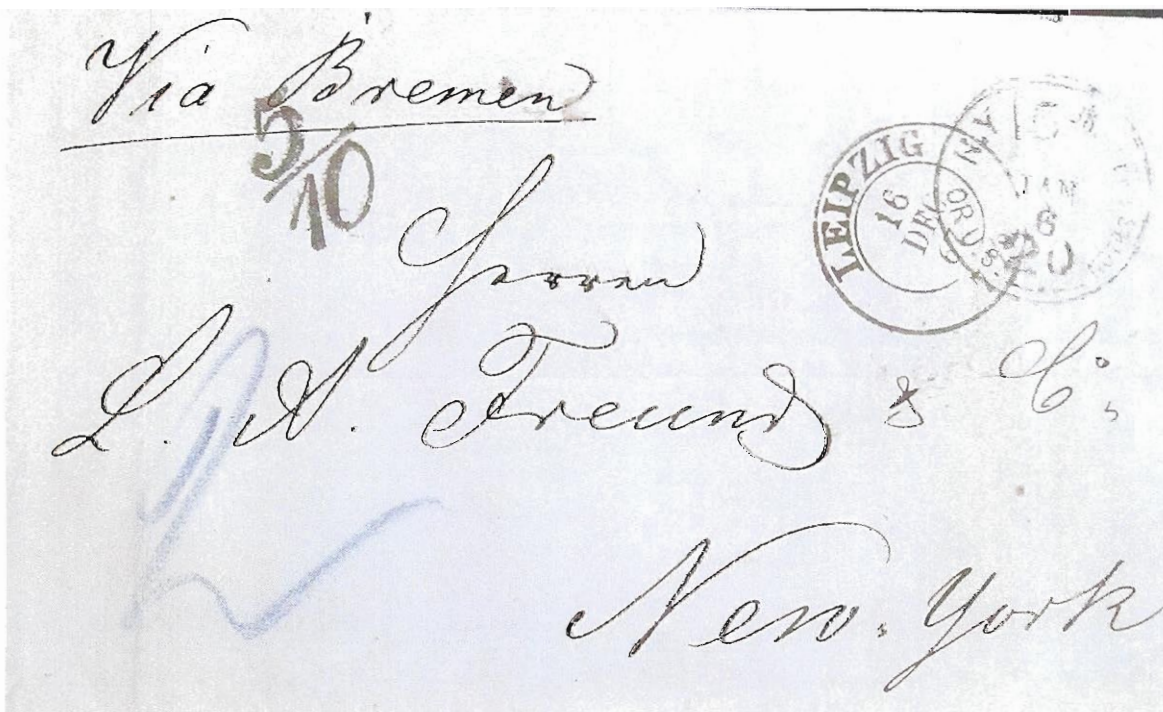 Via Bremen
5/10
LEIPZIG
16
DE
N.Y.
JAN
6
OR U.S.
20
Herren
L. A. Freund & Co:
New-York
2